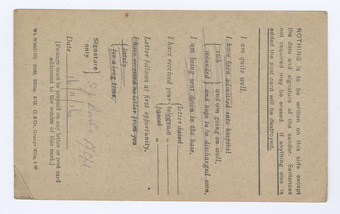 NOTHING is to be written on this side except
the date and signature of the sender. Sentences
not required may be erased. If anything else is
added the post card will be destroyed.
I am quite well.
I have been admitted into hospital
sick and am going on well.
wounded and hope to be discharged soon.
I am being sent down to the base.
letter dated
I have received your telegram
parcel
Letter follows at first opportunity.
I have received no letter from you
lately
for a long time.
Signature
only
Date
[Postage must be prepaid on any letter or post card
addressed to the sender of this card.]